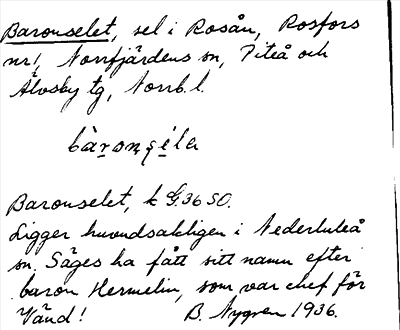 Baronselet, sel i Rosån, Rosfors
nr 1, Norrfjärdens sn, Piteå och
Älvsby tg, Norrb. l.
Baronselet, k G. 36 SO.
Ligger huvudsakligen i Nederluleå
sn. Säges ha fått sitt namn efter
baron Hermelin, som var chef för
Vänd! B. Nygren 1936.